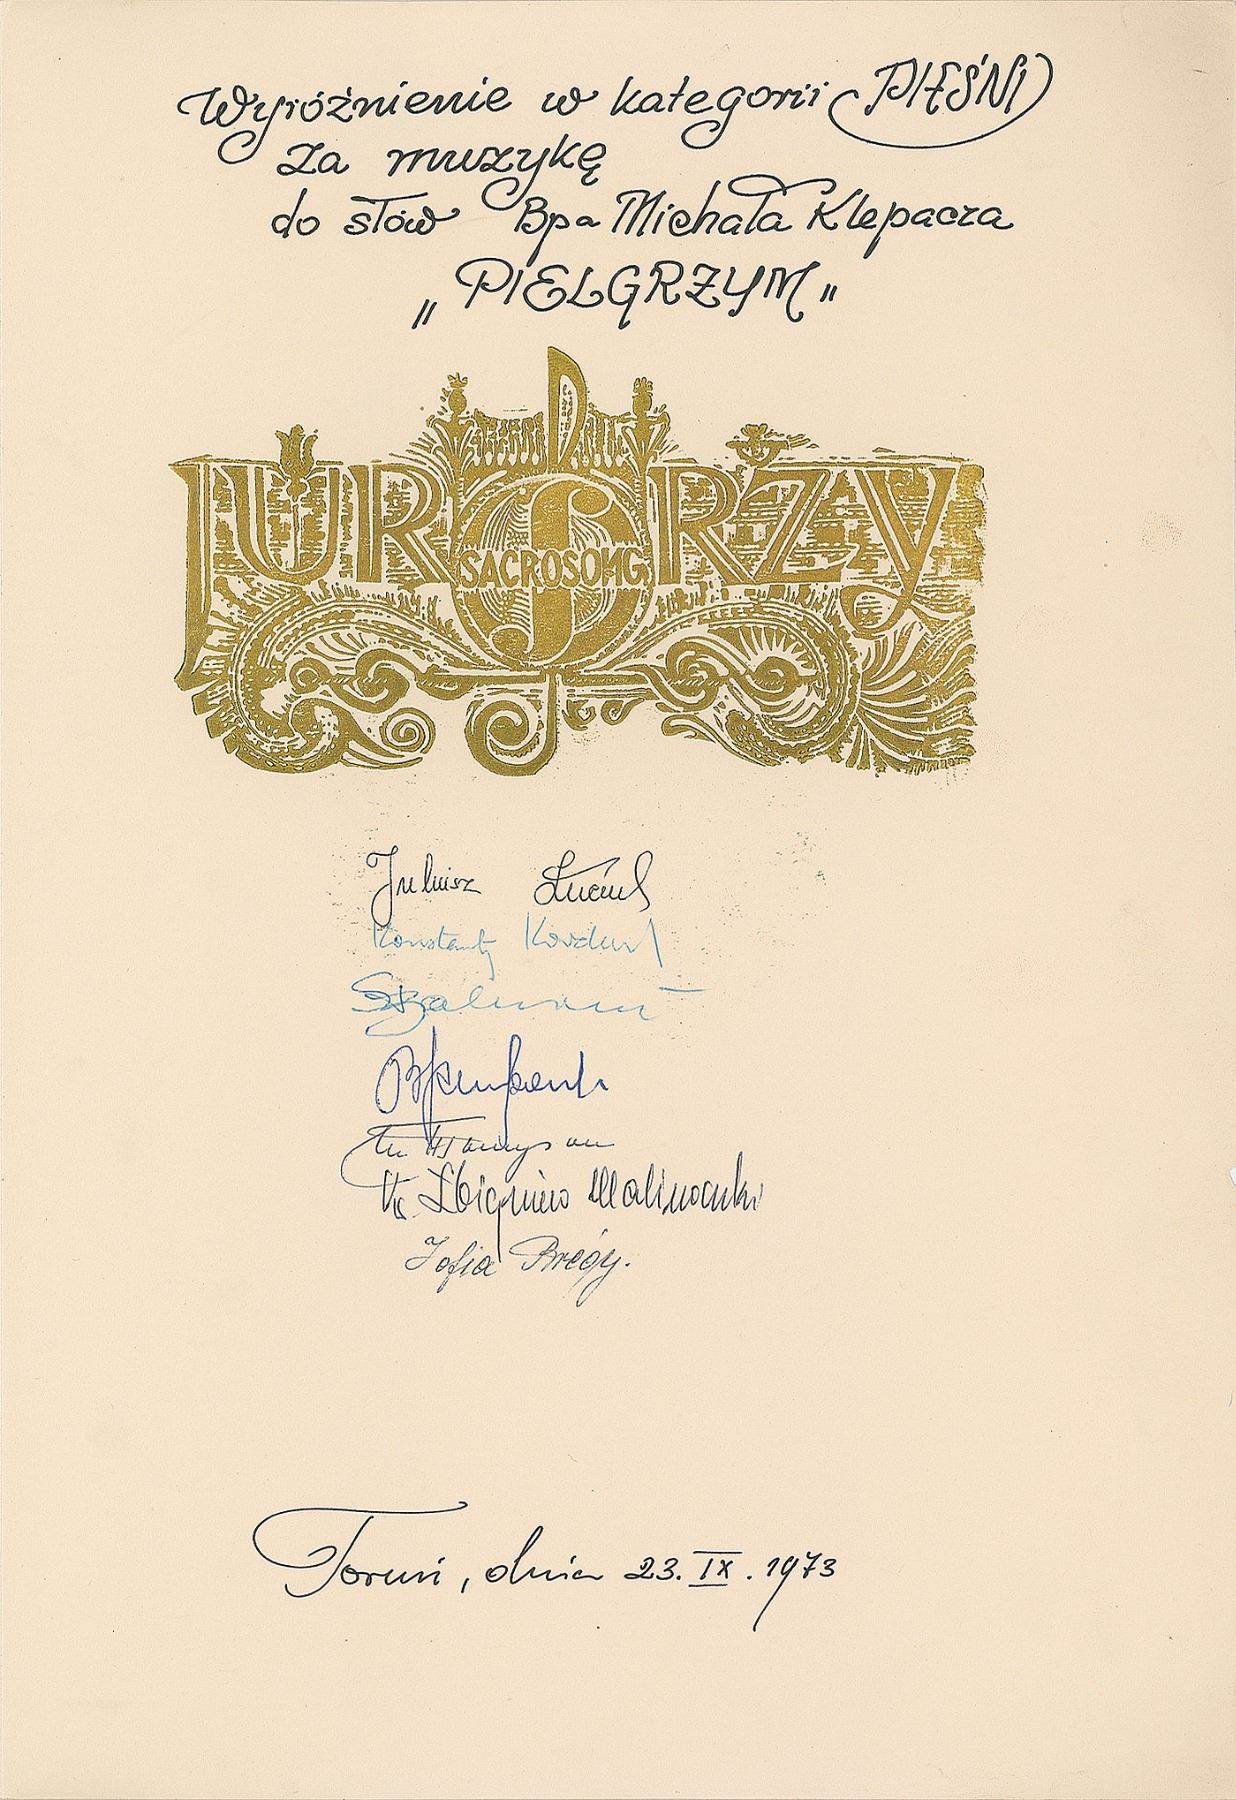 Wyróżnienie w kategorii PIEŚNI
Za muzykę
do słów Bpa Michała Klepacza
„PIELGRZYM"
JURORZY
SACROSONG
Juliusz Łuciuk
Konstanty
Ks Zbigniew Malinowski
Zofia Bregy.
Toruń, dnia 23.IX.1973